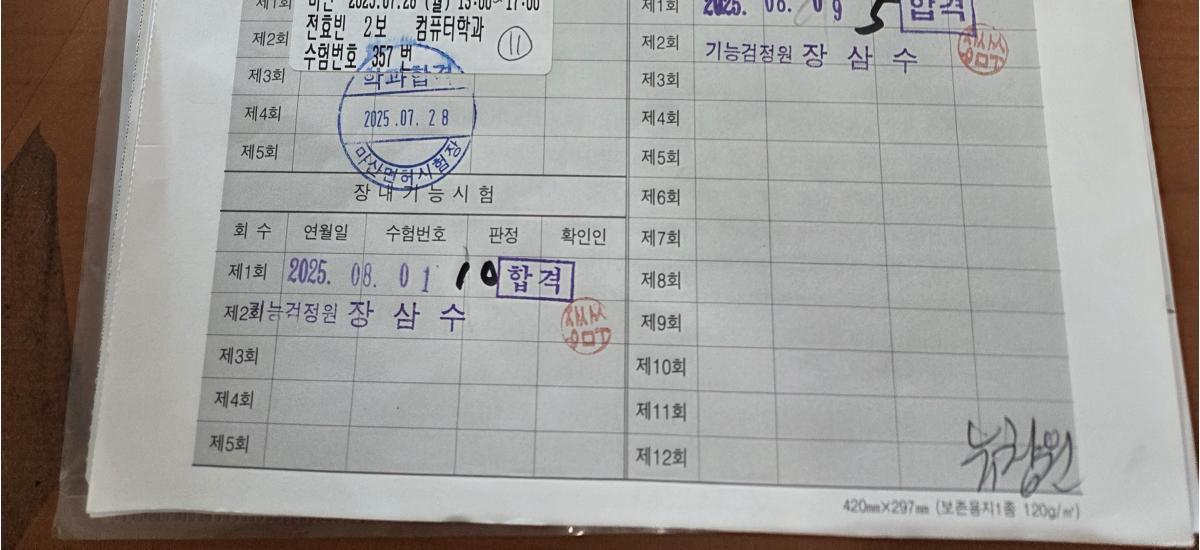 제1회
마산 2025.07.28 (월) 15:00~17:00
전효빈 2보 컴퓨터학과
수험번호 357 번
11
제2회
제3회
제4회
제5회
학과합격
2025.07.28
마산면허시험장
장내기능시험
회 수 연월일 수험번호 판정 확인인
제1회 2025. 08. 01 10 합격
제2회 기능검정원 장 삼 수
제3회
제4회
제5회
제1회 2025. 08. 09 5 합격
제2회 기능검정원 장 삼 수
제3회
제4회
제5회
제6회
제7회
제8회
제9회
제10회
제11회
제12회
420㎜×297㎜ (보존용지1종 120g/㎡)